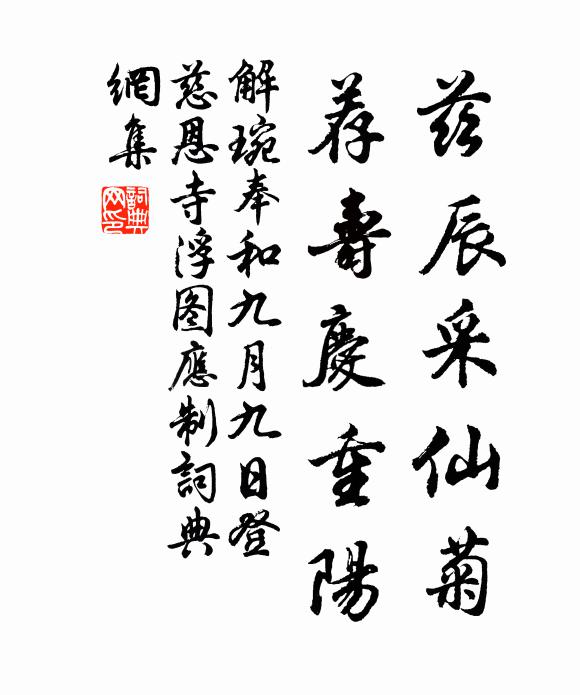 茲辰采仙菊
荐壽慶重陽
解琬奉和九月九日登
慈恩寺浮图應制詞典
網集
詞典网印